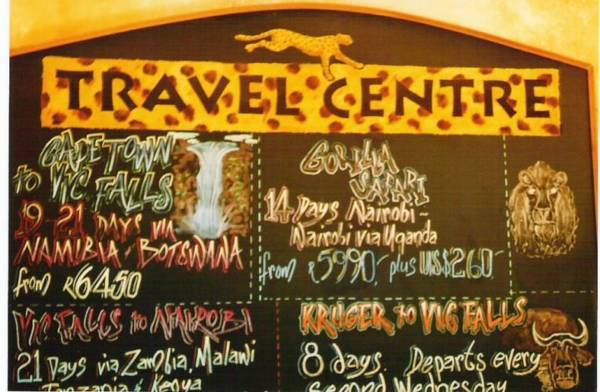 TRAVEL CENTRE
CAPE TOWN
to VIC FALLS
19-21 DAYS via
NAMIBIA-BOTSWANA
from R6450
GORILLA
SAFARI
14 Days Nairobi -
Nairobi via Uganda
from R5990,- plus US$260,-
VIC FALLS to NAIROBI
21 Days via Zambia, Malawi
Tanzania & Kenya
KRUGER to VIC FALLS
8 days. Departs every
Second Wednesday